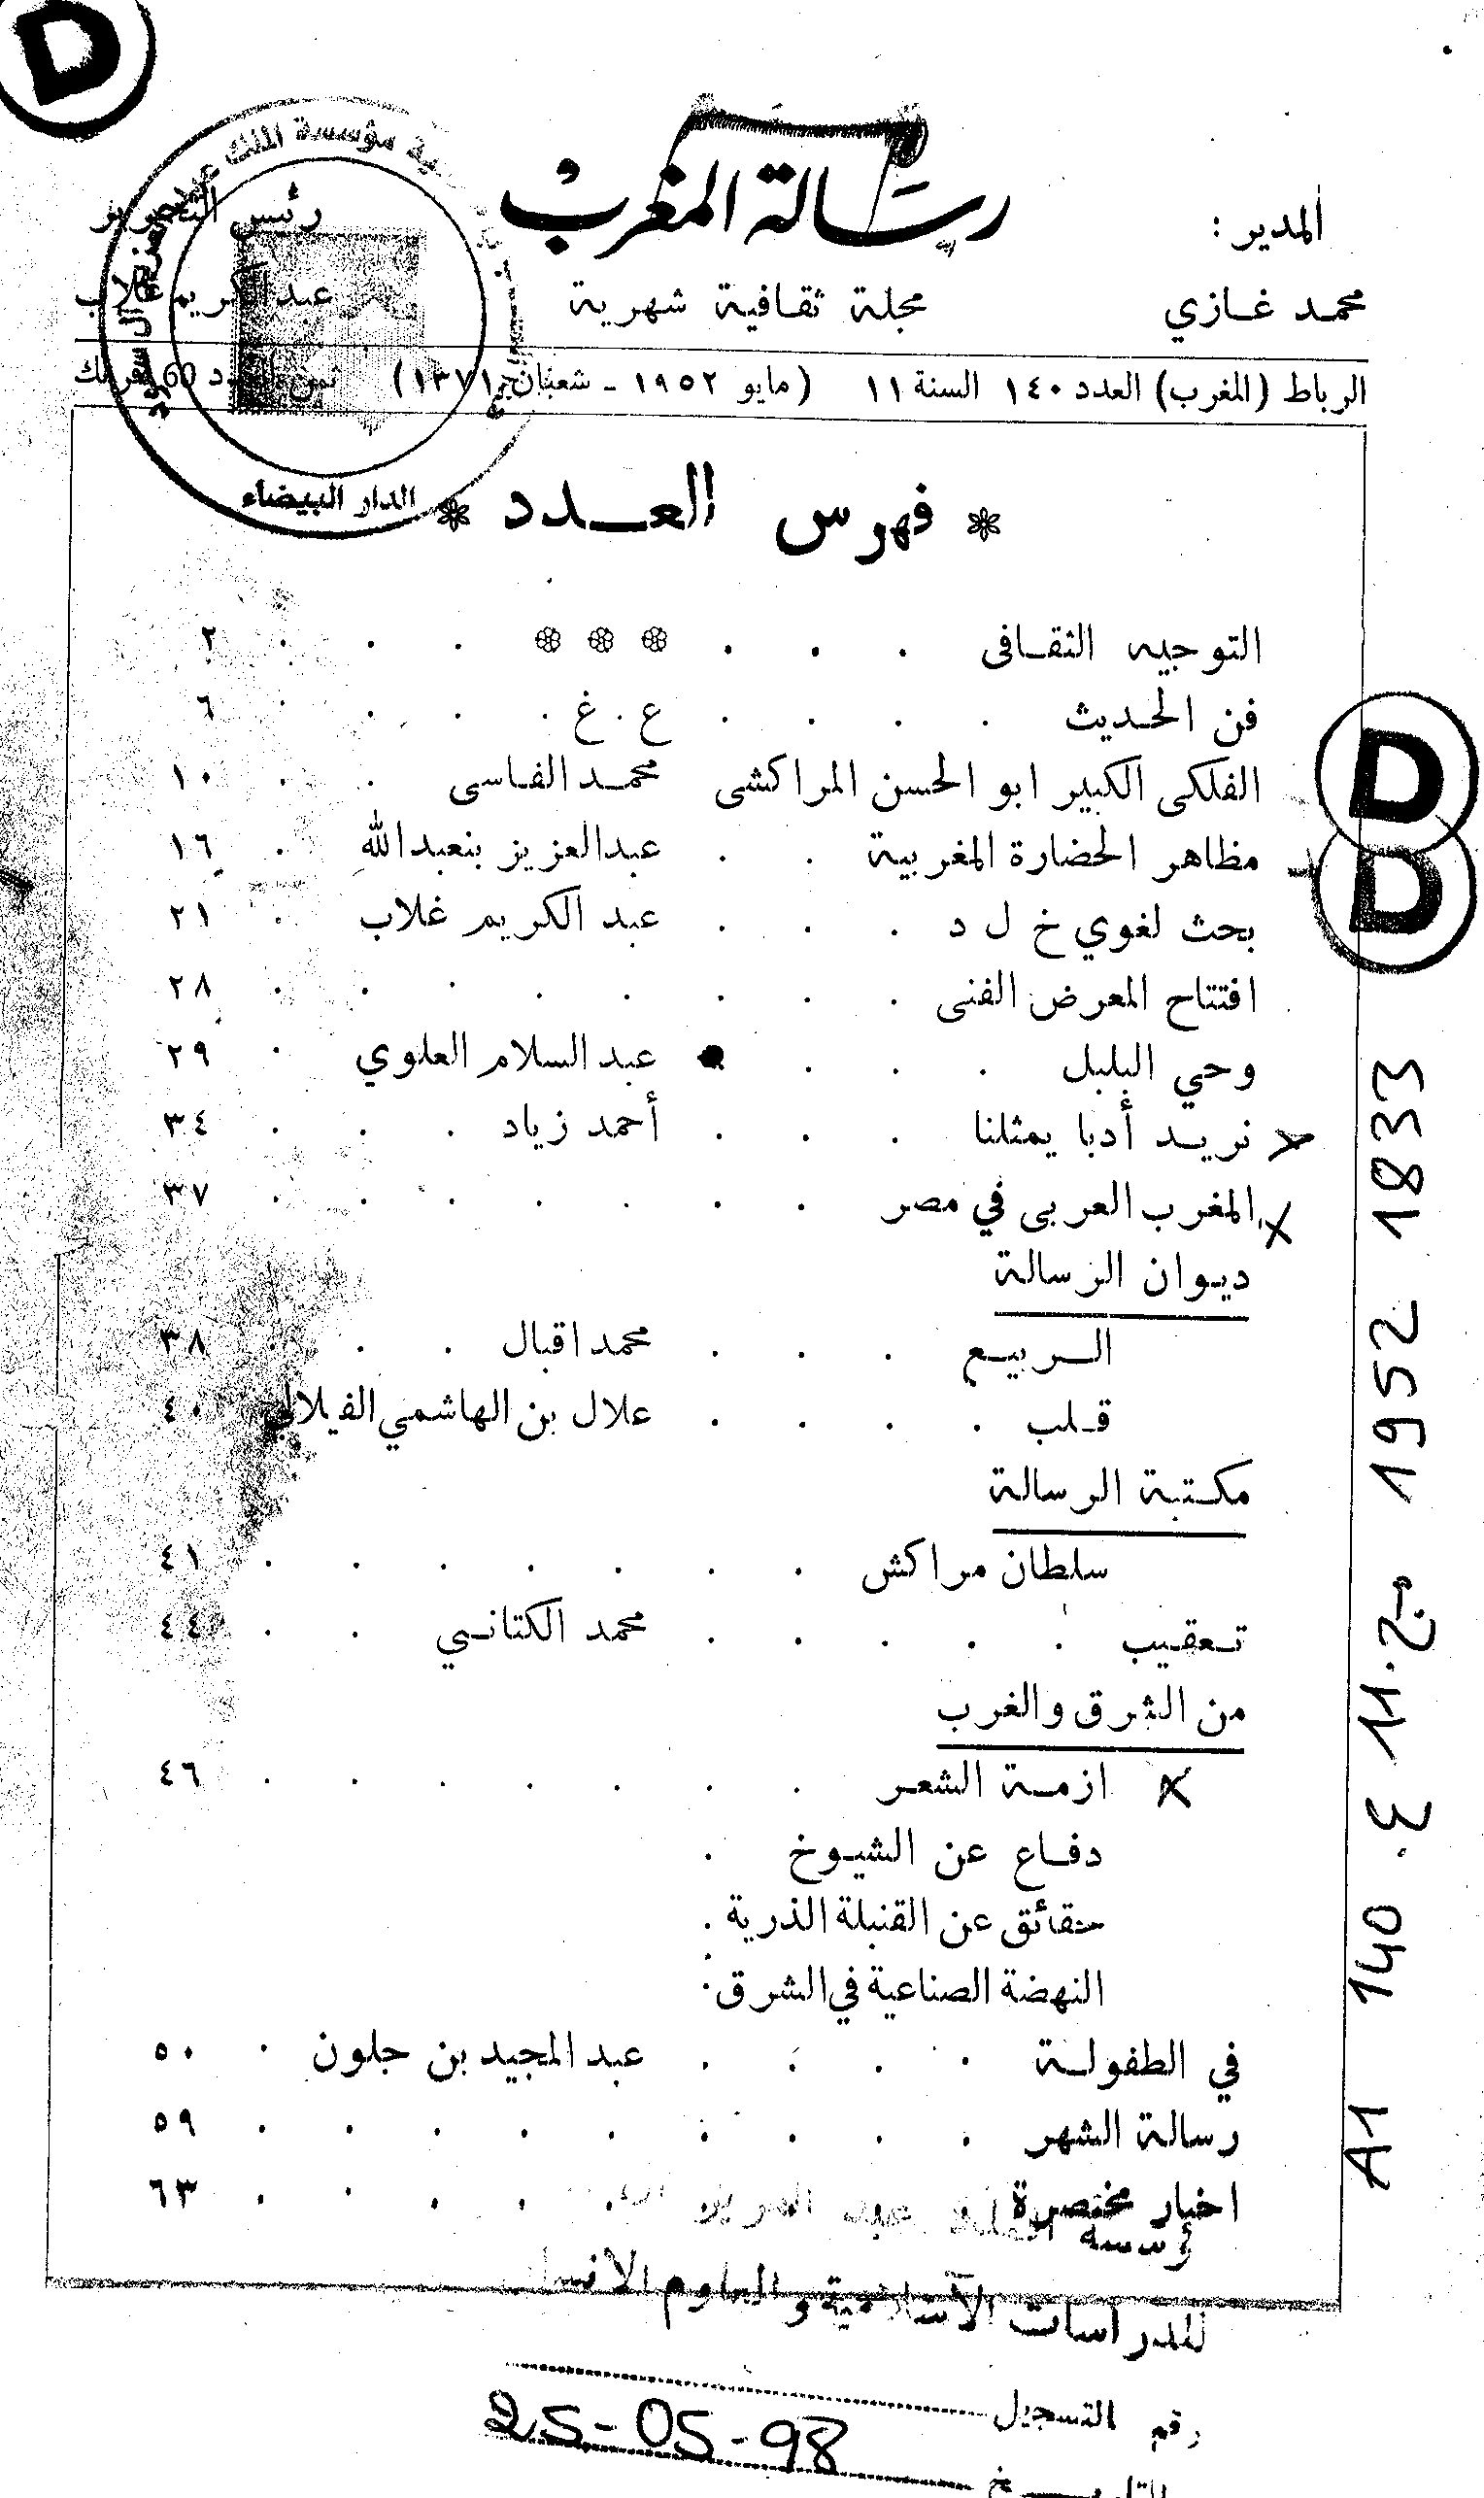 رسالة المغرب
المدير :
محمد غازي
مجلة ثقافية شهرية
رئيس التحرير
عبد الكريم غلاب
الرباط (المغرب) العدد ١٤٠ السنة ١١ (مايو ١٩٥٢ - شعبان ١٣٧١) ثمن العدد 60 فرنك
مؤسسة الملك عبد العزيز آل سعود
الدار البيضاء
* فهرس العدد *
التوجيه الثقافى . . . ٢
فن الحديث . . . . ع . غ . . . . ٦
الفلكى الكبير ابو الحسن المراكشى محمد الفاسى . . ١٠
مظاهر الحضارة المغربية . . عبدالعزيز بنعبدالله . ١٦
بحث لغوي خ ل د . . . عبد الكريم غلاب . ٢١
افتتاح المعرض الفنى . . . . . . . . ٢٨
وحي البلبل . . . عبد السلام العلوي . ٢٩
نريد أدبا يمثلنا . . . أحمد زياد . . . ٣٤
المغرب العربى في مصر . . . . . . . ٣٧
ديوان الرسالة
الربيع . . . محمد اقبال . . . ٣٨
قلب . . . . علال بن الهاشمي الفيلالي ٤٠
مكتبة الرسالة
سلطان مراكش . . . . . . . ٤١
تعقيب . . . . . محمد الكتانـي . . ٤٤
من الشرق والغرب
ازمة الشعر . . . . . . . ٤٦
دفاع عن الشيوخ .
حقائق عن القنبلة الذرية .
النهضة الصناعية في الشرق .
في الطفولة . . . . عبد المجيد بن جلون . ٥٠
رسالة الشهر . . . . . . . . . ٥٩
اخبار مختصرة . . . . . ٦٣
مؤسسة الملك عبد العزيز
للدراسات الاسلامية والعلوم الانسانية
رقم التسجيل
25-05-98
التاريخ
A1 140 ع 11.ج مج 1952 1833
D
D
D